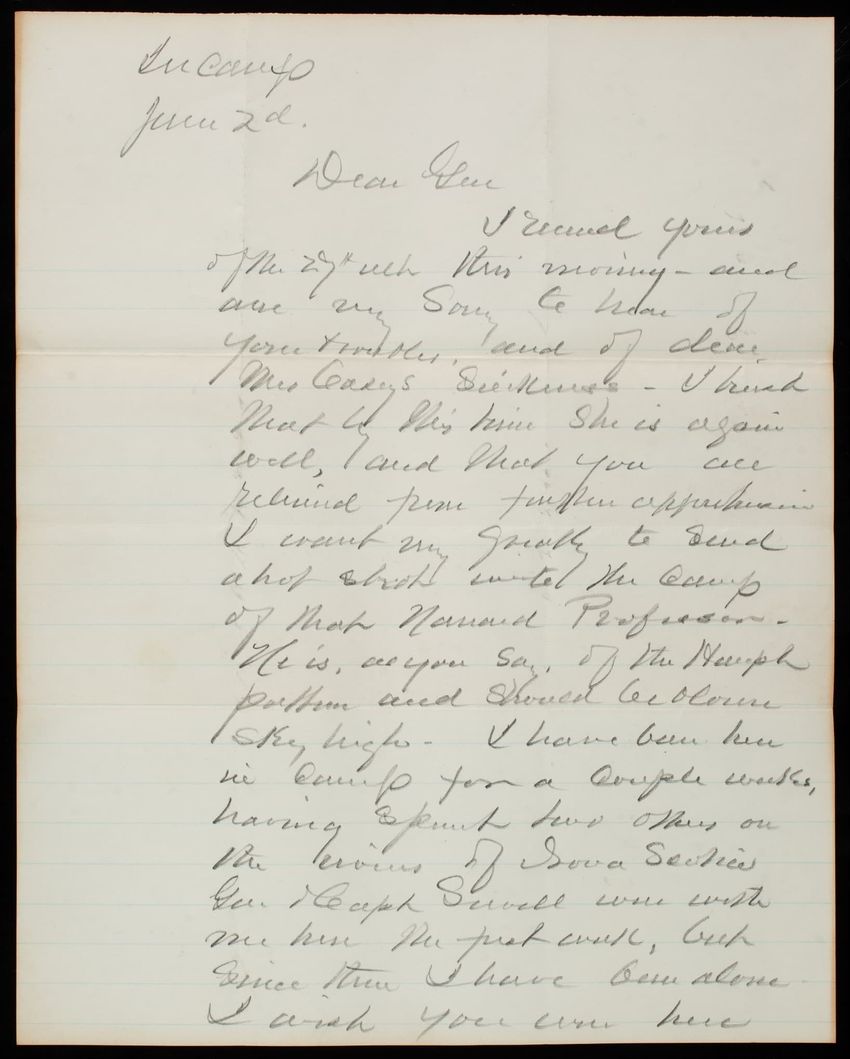 In Camp
June 2d.
Dear Gen
I recived yours
of the 27th ulto this morning - and
am very Sorry to hear of
your troubles, and of dear
Mrs Caseys Sickness - I trust
that by this time She is again
well, and that you are
relieved from further apprehension
I want very greatly to Send
a hot shot into the Camp
of that Harvard Professor -
He is, as you Say, of the
pattern and should be blown
sky high - I have been here
in Camp for a Couple weeks,
having Spent two others on
the rivers of Nova Scotia
Gen & Capt Sewell were with
me here the first week, but
Since then I have been alone
I wish you were here